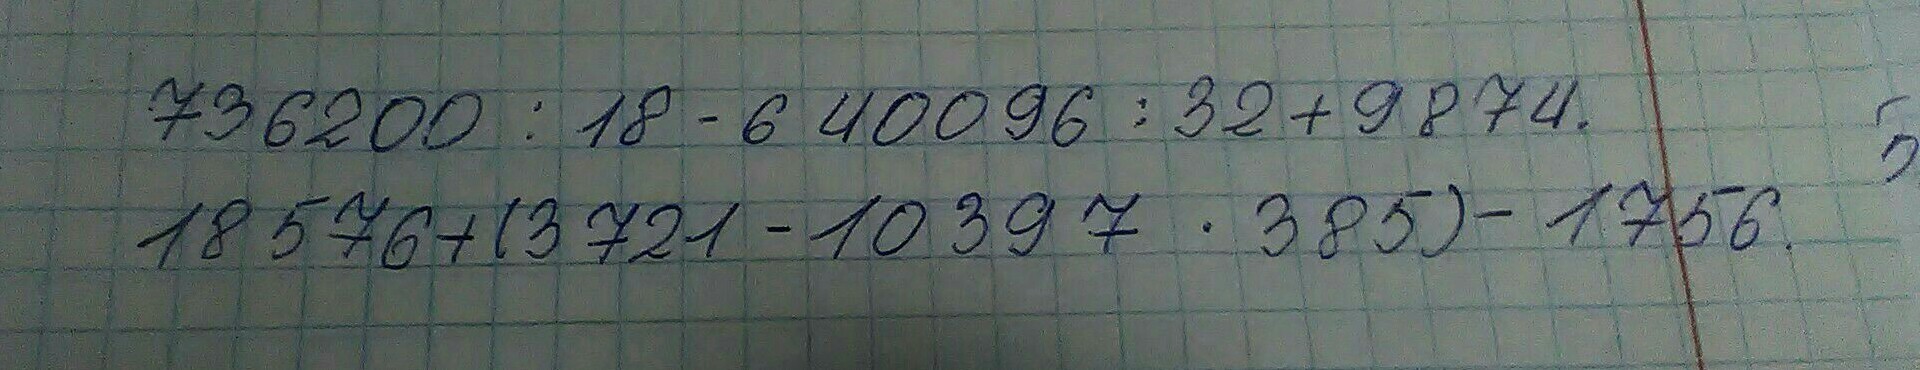 736200 : 18 - 640096 : 32 + 9874.
18576 + (3721 - 10397 · 385) - 1756.